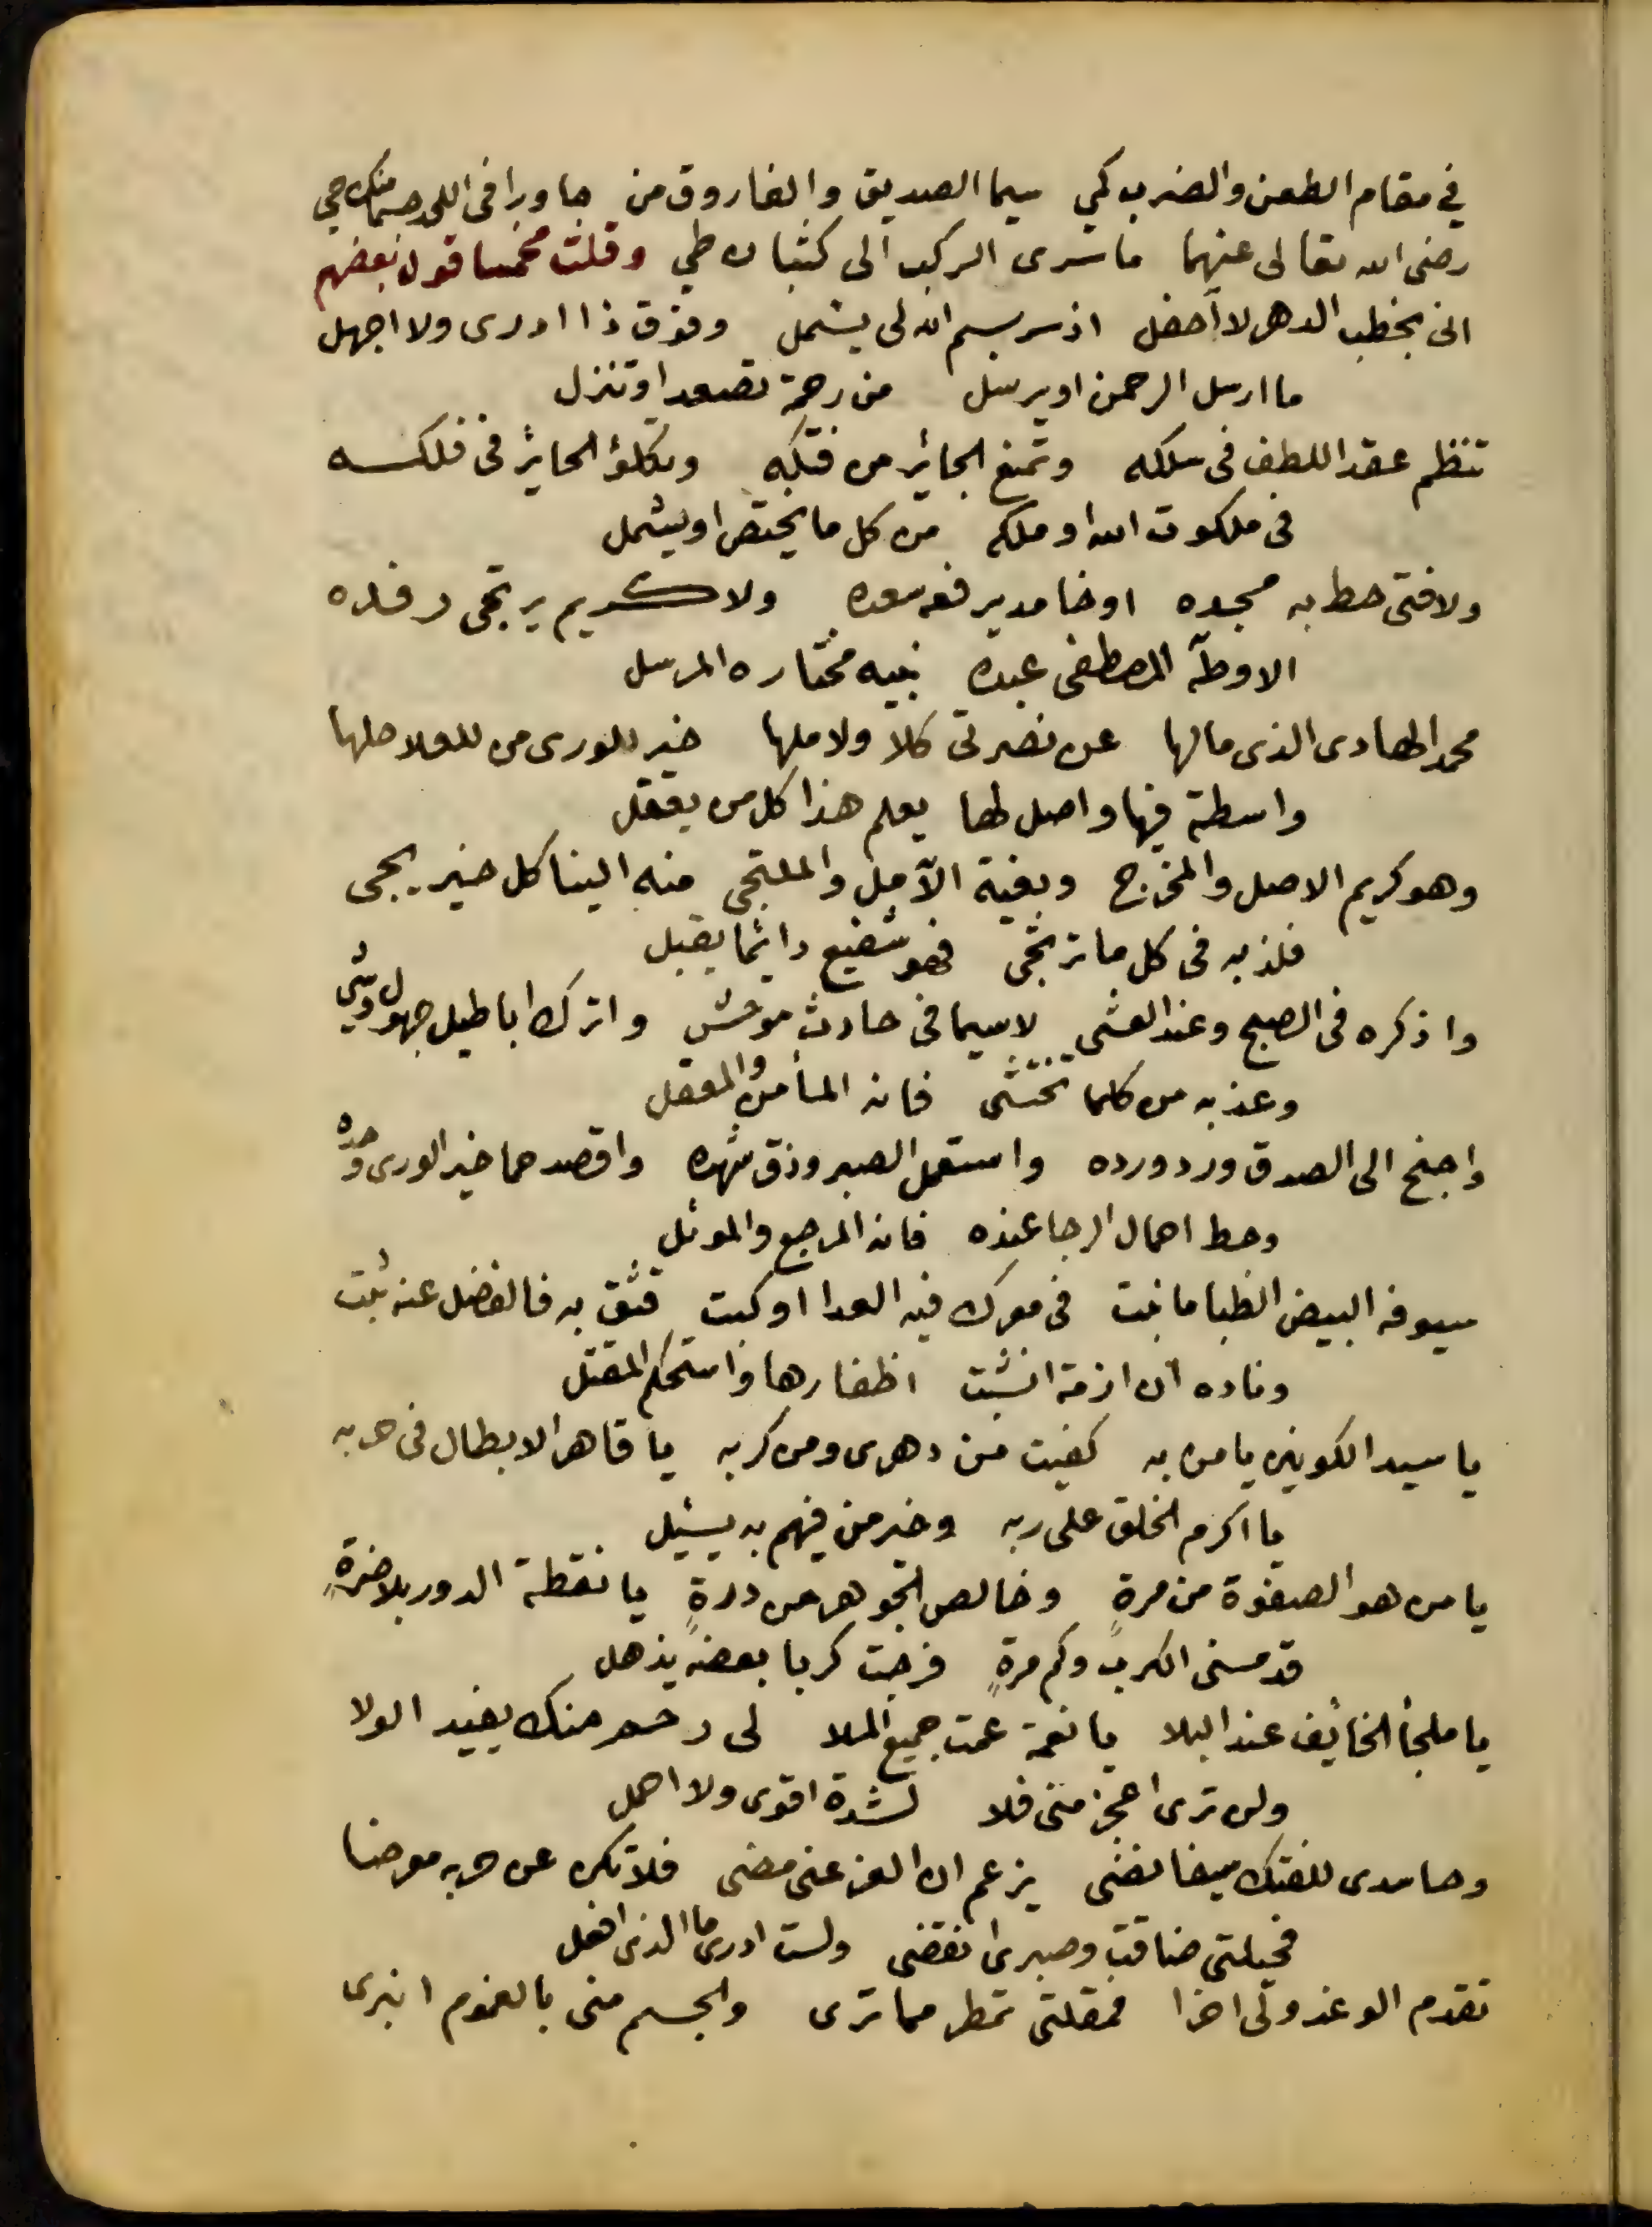 في مقام الطعن والضرب كمي سيما الصديق والفاروق من جاورا في اللحد جسما منك حي
رضى الله تعالى عنهما ما سرى الركب الى كثبان طي وقلت مخمسا قول بعضهم
انى بخطب الدهر لا أحفل اذ سر بسم الله لى يشمل وفوق ذا ادرى ولا اجهل
ما ارسل الرحمن او يرسل من رحمة تصعد او تنزل
تنظم عقد اللطف فى سلكه وتمنع الجائر من فتكه وتكلؤ الحايز فى فلكه
فى ملكوت الله او ملكه من كل ما يختص او يشمل
ولا فتى حط به مجده او خامد يرفعه سعده ولا كريم يرتجى رفده
الا وطه المصطفى عبده نبيه مختاره المرسل
محمد الهادى الذى ما لها عن نصرتى كلا ولا ملها خير الورى من للعلا حلها
واسطة فيها واصل لها يعلم هذا كل من يعقل
وهو كريم الاصل والمخرج وبغية الآمل والملتجى منه الينا كل خير يجى
فلذ به فى كل ما ترتجى فهو شفيع دائما يقبل
واذكره فى الصبح وعند العشى لاسيما فى حادث موحش واترك اباطيل جهول وشي
وعذ به من كلما تختشى فانه المأمن والمعقل
واجنح الى الصدق ورد ورده واستعمل الصبر وذق شهده واقصد حما خير الورى وحده
وحط احمال الرجا عنده فانه المرجع والموئل
سيوفه البيض الظبا ما نبت فى معرك فيه العدا او كبت فثق به فالفضل عنه ثبت
وناده ان ازمة انشبت اظفارها واستحكم المقتل
يا سيد الكونين يا من به كفيت من دهرى ومن كربه يا قاهر الابطال فى حربه
يا اكرم الخلق على ربه وخير من فيهم به يسئل
يا من هو الصفوة من مرةٍ وخالص الجوهر من درةٍ يا نقطة الدور بلا ضرةٍ
قد مسنى الكرب وكم مرةٍ فرجت كربا بعضه يذهل
يا ملجأ الخائف عند البلا يا نعمة عمت جميع الملا لى رحم منك يفيد الولا
ولن ترى اعجز منى فلا لشدة اقوى ولا احمل
وحاسدى للفتك سيفا نضى يزعم ان العز عنى مضى فلا تكن عن حربه معرضا
فحيلتى ضاقت وصبرى انقضى ولست ادرى ما الذى افعل
تقدم الوغد وتى اخرا فمقلتى تمطر مما ترى والجسم منى بالغموم انبرى